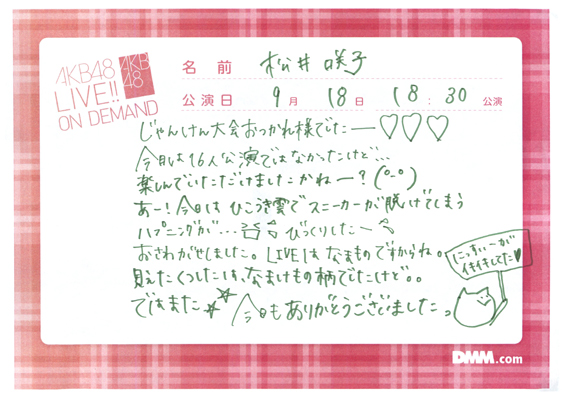 AKB48
LIVE!!
ON DEMAND
AKB
48
名前 松井咲子
公演日 9月 18日 18:30 公演
じゃんけん大会おつかれ様でしたー♡♡♡
今日は16人公演ではなかったけど…
楽しんでいただけましたかねー?(°-°)
あー!今日はひこうき雲でスニーカーが脱げてしまう
ハプニングが… びっくりしたー
おさわがせしました。LIVEはなまものですからね。
見えたくつしたは、なまけもの柄でしたけど。
ではまた☆ 今日もありがとうございましたっ
にっすぃーが
イキイキしてた♥
DMM.com